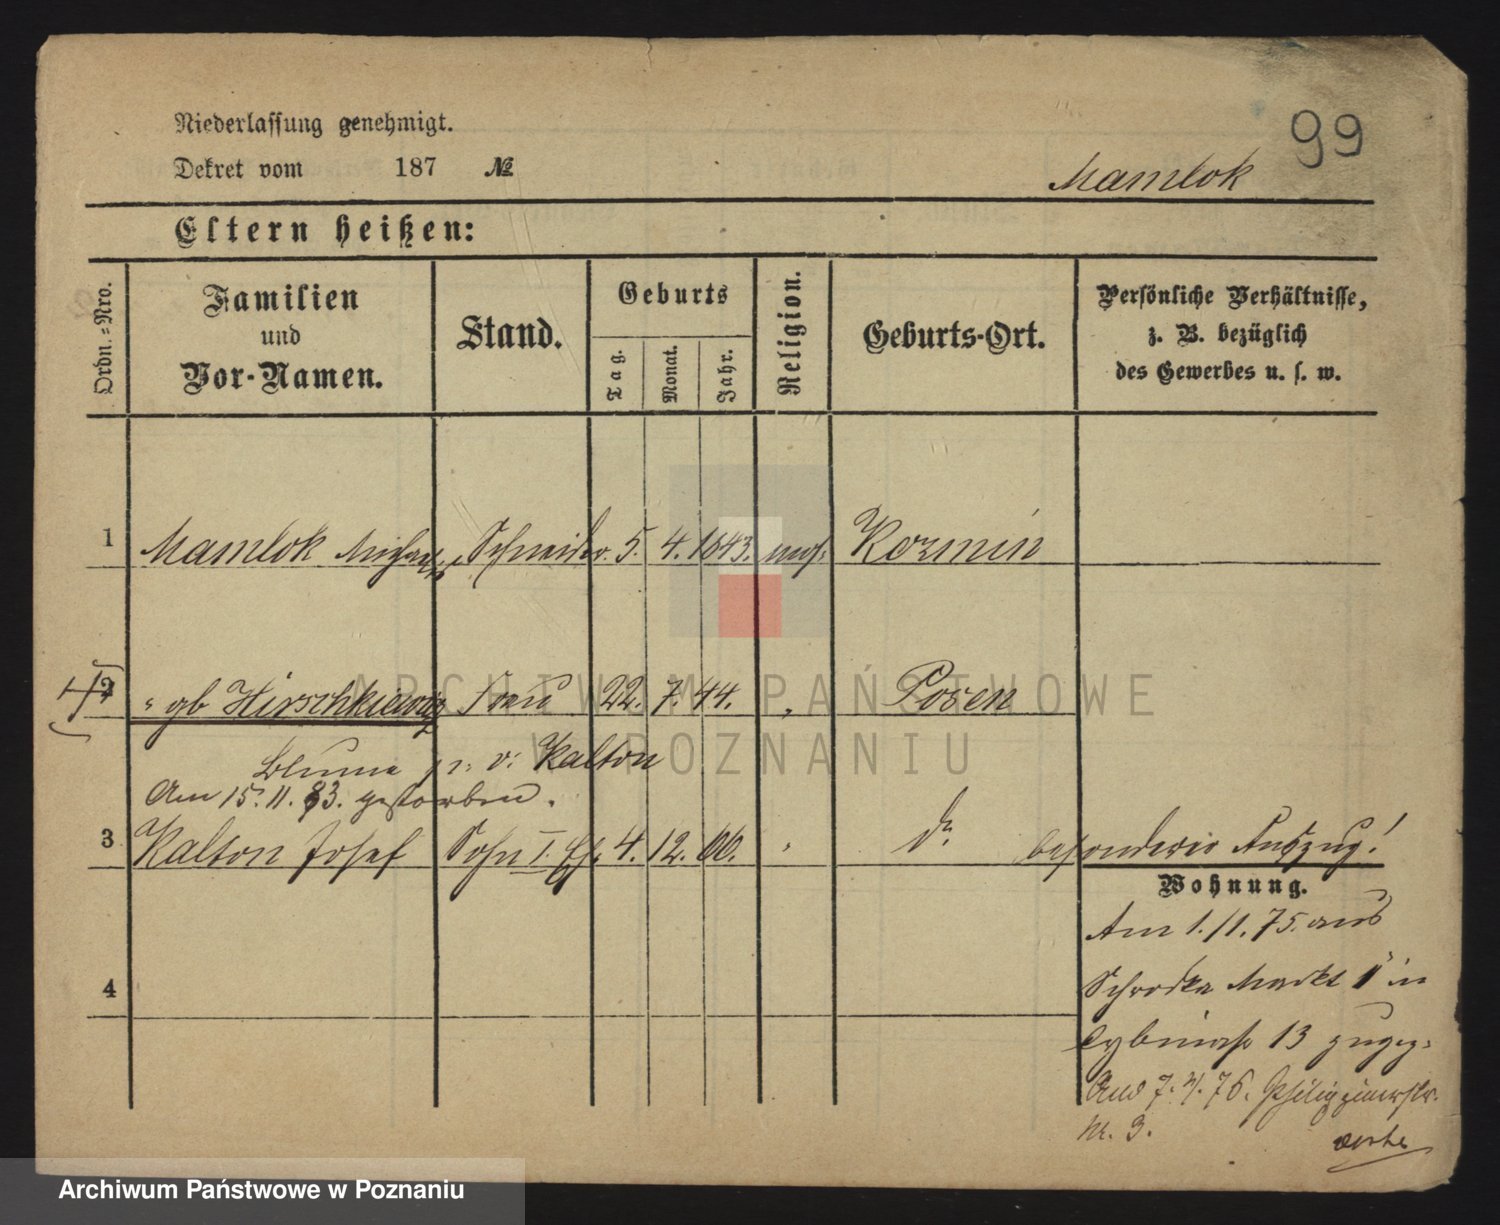 99
Niederlassung genehmigt.
Dekret vom 187 №
Mamlok
Eltern heißen:
Ordn.-Nro.
Familien
und
Vor-Namen.
Stand.
Geburts
Tag.
Monat.
Jahr.
Religion.
Geburts-Ort.
Persönliche Verhältnisse,
z. B. bezüglich
des Gewerbes u. s. w.
1 Mamlok Michael Schneider. 5. 4. 1843. mos: Kozmin
2 " gb Hirschkiewicz Frau 22. 7. 44. " Posen
Blume v: Kalton
Am 15. 11. 83. gestorben.
3 Kalton Josef Sohn I. Eh. 4. 12. 66. " do besonderer Auszug!
Wohnung.
Am 1./1. 75. aus
4
Schrodka Markt 1 in
Cybinastr 13 zugez:
And 7. 4. 76. Philippinerstr.
Nr. 3.
ARCHIWUM PAŃSTWOWE
W POZNANIU
Archiwum Państwowe w Poznaniu